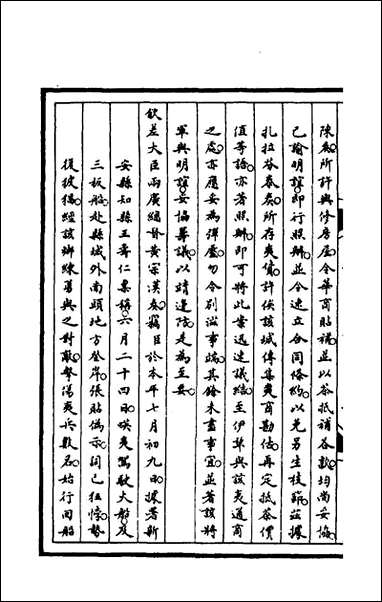 陳奏所許興修房屋令華商貼補並以茶抵補各款均尚妥協
已諭明誼即行照辦並令速立合同條約以免另生枝節茲據
扎拉芬泰奏所存夷貨許俟該城傳集夷商勘估再定抵茶價
值等語亦著照辦即可將此案迅速議結至伊犂與該夷通商
之處亦應妥為彈壓勿令別滋事端其餘未盡事宜並著該將
軍與明誼妥協籌議以靖邊陲是為至要
欽差大臣兩廣總督黃宗漢奏竊臣於本年七月初九日據署新
安縣知縣王壽仁稟稱六月二十四日㗸夷駕駛火船及
三板船赴縣城外南頭地方登岸張貼偽示詞已狂悖勢
復披猖經該鄉練勇與之對敵擊傷夷兵數名始行回船